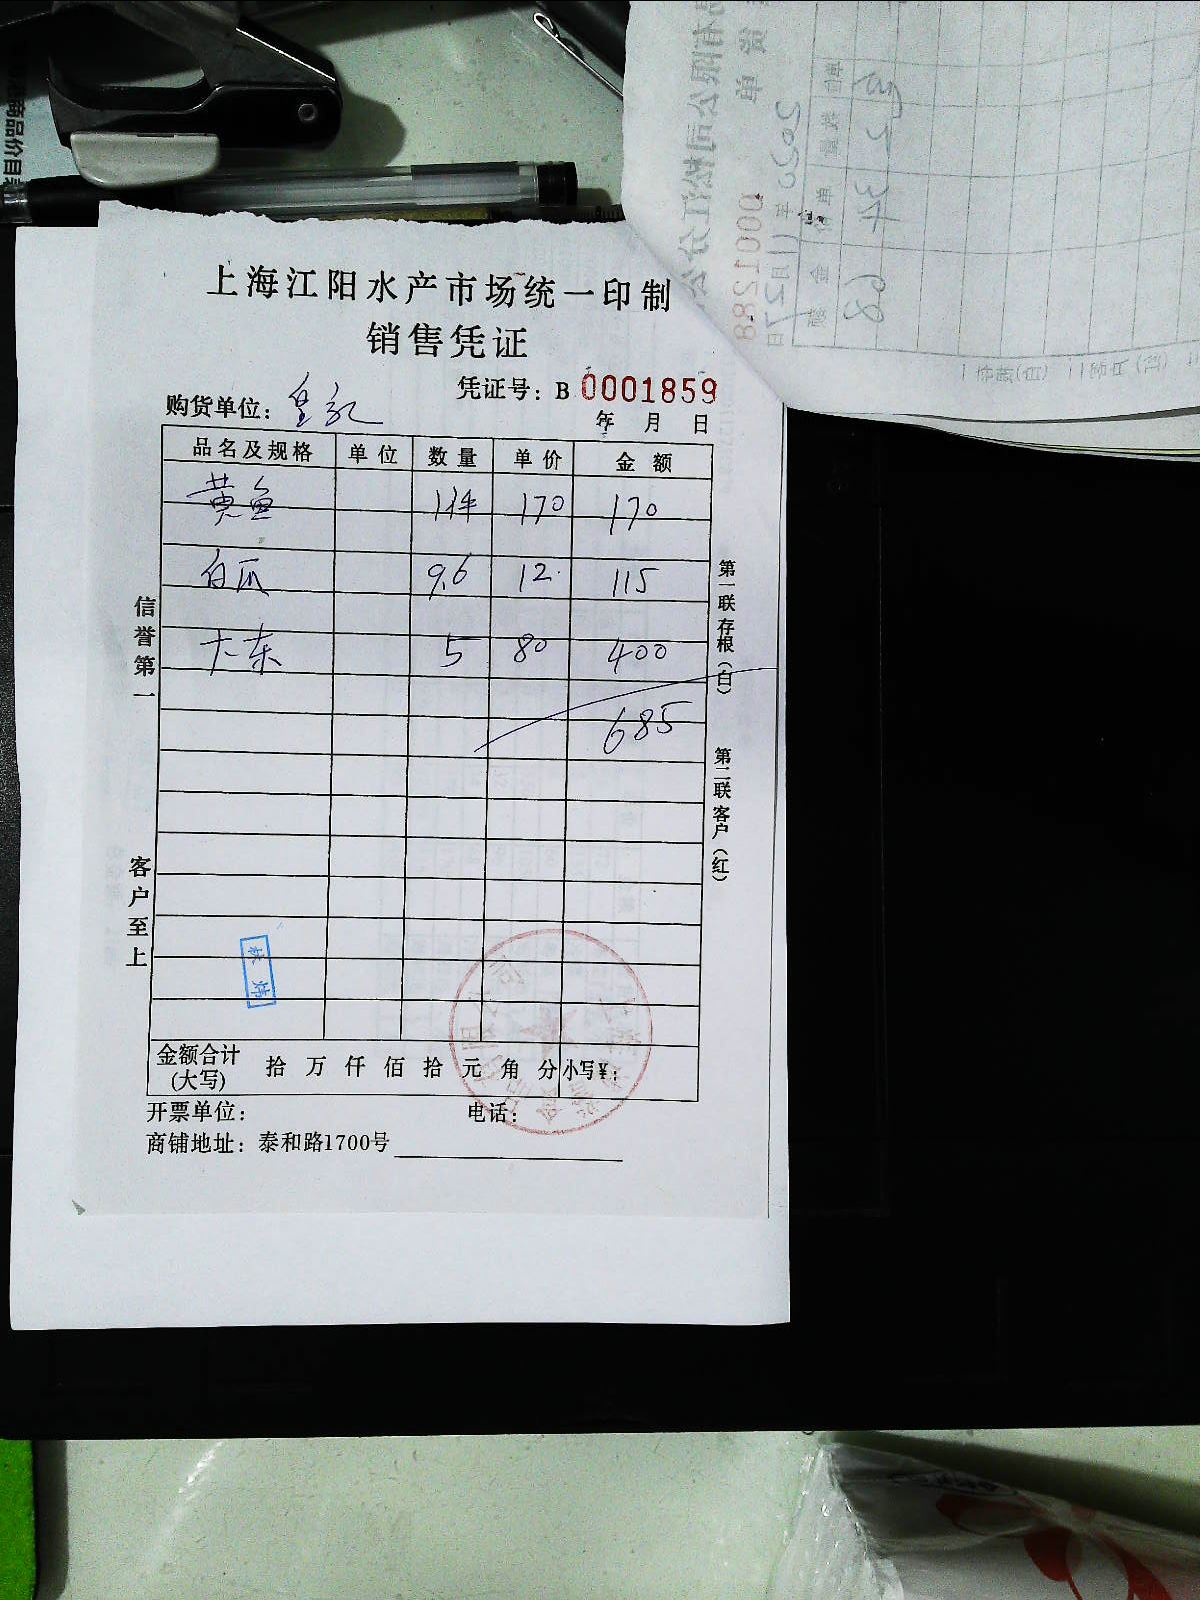 上海江阳水产市场统一印制
销售凭证
凭证号：B 0001859
购货单位：皇记
年 月 日
品名及规格 单位 数量 单价 金额
黄鱼 1件 170 170
白爪 9.6 12. 115
大东 5 80 400
685
信誉第一
客户至上
第一联存根（白）
第二联客户（红）
金额合计(大写) 拾 万 仟 佰 拾 元 角 分 小写¥：
开票单位： 电话：
商铺地址：泰和路1700号
商品价目
0001288